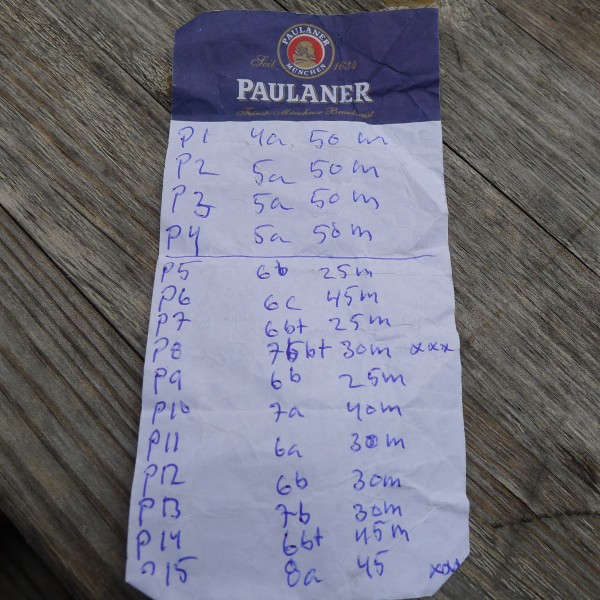 PAULANER
MÜNCHEN
Seit 1634
PAULANER
P1 4a 50 m
P2 5a 50 m
P3 5a 50 m
P4 5a 50 m
P5 6b 25m
P6 6c 45m
P7 6b+ 25m
P8 6b+ 30m xxx
P9 6b 25m
P10 7a 40m
P11 6a 30m
P12 6b 30m
P13 7b 30m
P14 6b+ 45m
P15 8a 45 xxx